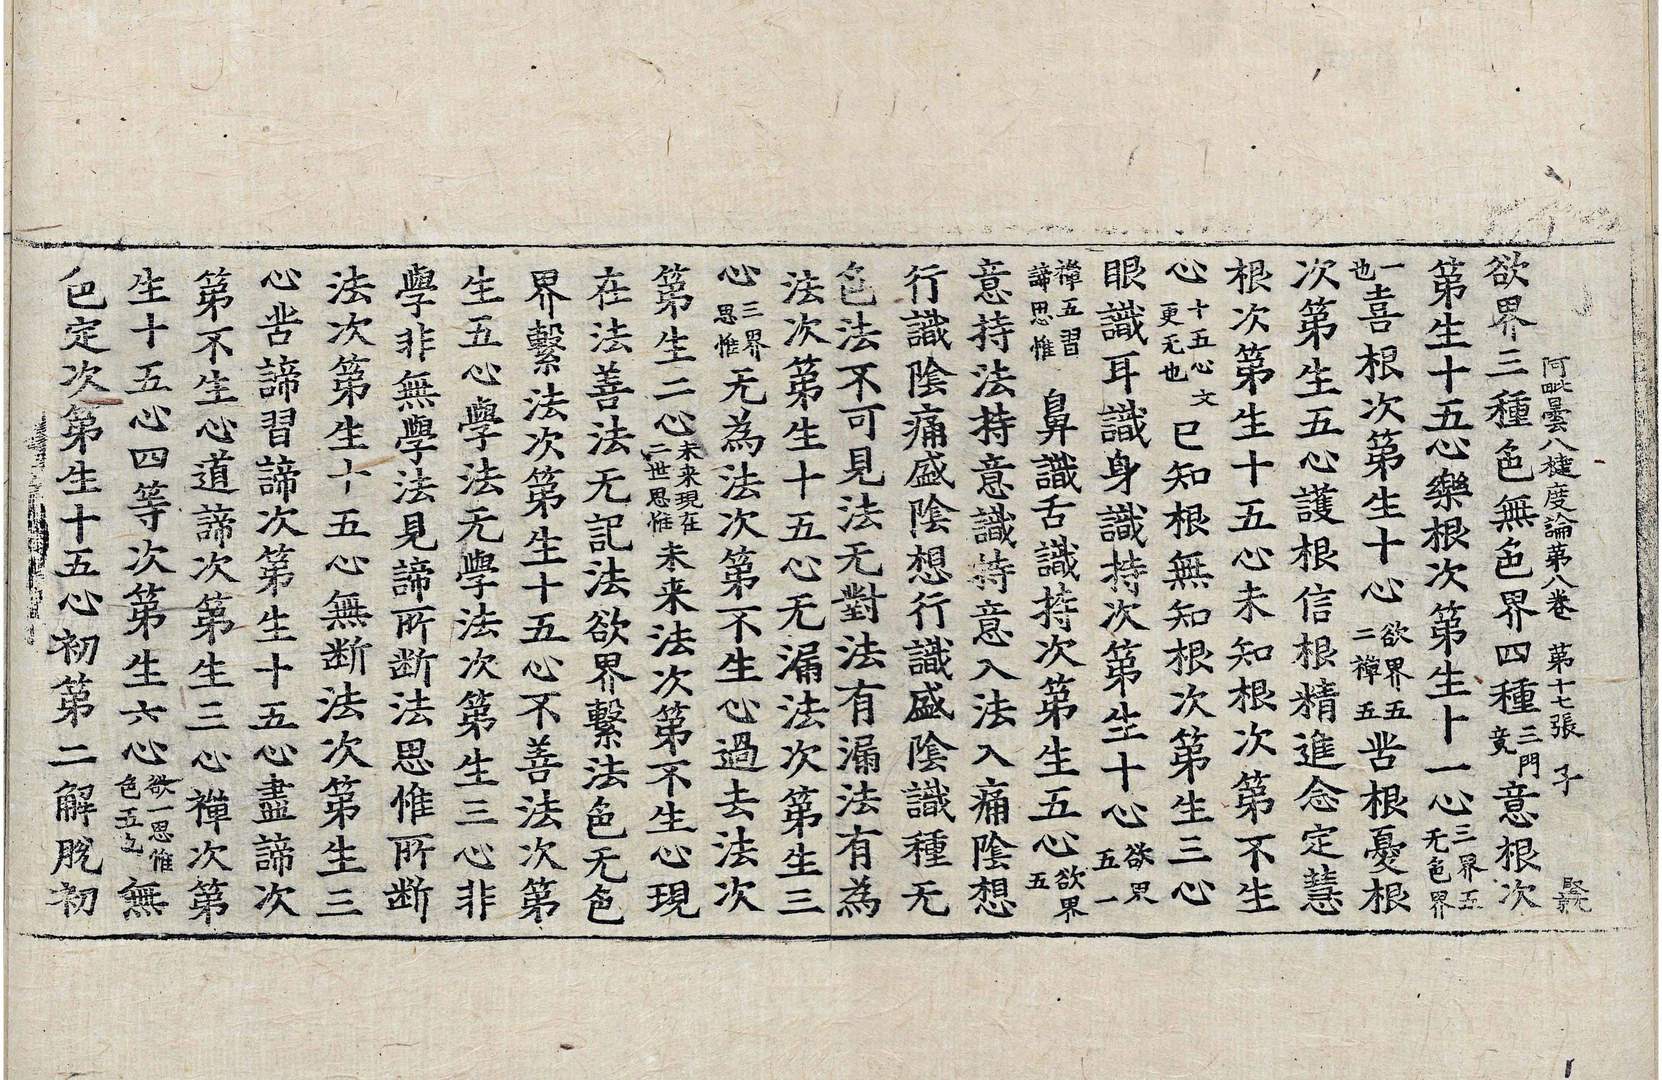 阿毗曇八揵度論第八卷 第十七張 子 賢
欲界三種色無色界四種三門竟意根次
第生十五心樂根次第生十一心三界五无色界
一也喜根次第生十心欲界五二禪五苦根憂根
次第生五心護根信根精進念定慧
根次第生十五心未知根次第不生
心十五心文更无也已知根無知根次第生三心
眼識耳識身識持次第生十心欲界五一
禪五習諦思惟鼻識舌識持次第生五心欲界五
意持法持意識持意入法入痛陰想
行識陰痛盛陰想行識盛陰識種无
色法不可見法无對法有漏法有為
法次第生十五心无漏法次第生三
心三界思惟无為法次第不生心過去法次
第生二心未来現在二世思惟未来法次第不生心現
在法善法无記法欲界繫法色无色
界繫法次第生十五心不善法次第
生五心學法无學法次第生三心非
學非無學法見諦所斷法思惟所斷
法次第生十五心無斷法次第生三
心苦諦習諦次第生十五心盡諦次
第不生心道諦次第生三心禪次第
生十五心四等次第生六心欲一思惟色五之無
色定次第生十五心初第二解脫初